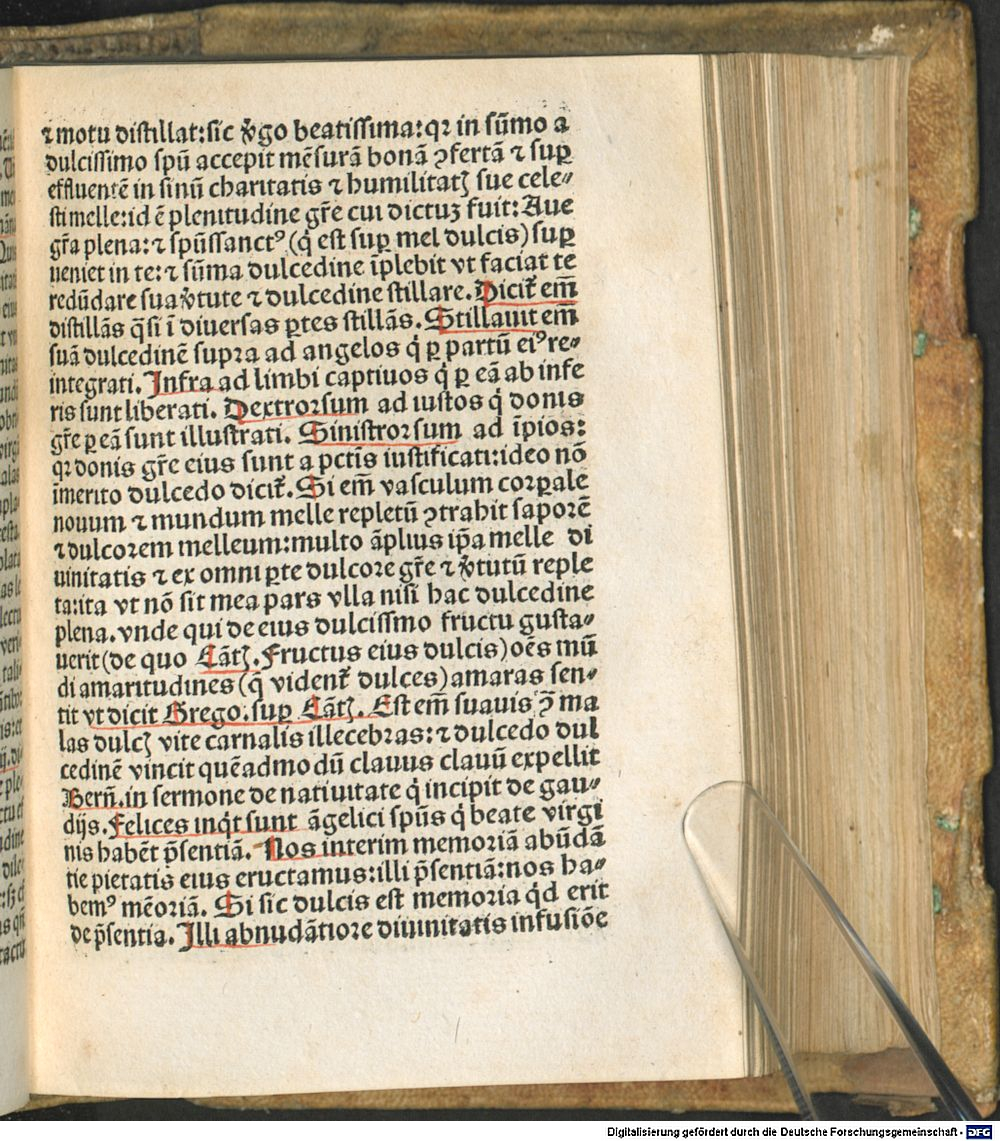 ⁊ motu distillat: sic ꝟgo beatissima: qꝛ in sūmo a
dulcissimo spū accepit mēsurā bonā ꝯfertā ⁊ suꝑ
effluentē in sinū charitatis ⁊ humilitatꝭ sue cele⸗
sti melle: id ē plenitudine gr̄e cui dictuꝫ fuit: Aue
gr̄a plena: ⁊ spūssanctꝰ (q̇ est suꝑ mel dulcis) suꝑ
ueniet in te: ⁊ sūma dulcedine īplebit vt faciat te
redūdare sua ꝟtute ⁊ dulcedine stillare. Dicit̄ em̄
distillās q̄si ī diuersas ꝑtes stillās. Stillauit em̄
suā dulcedinē supra ad angelos q̇ ꝑ partū eiꝰ re⸗
integrati. Infra ad limbi captiuos q̇ ꝑ eā ab infe
ris sunt liberati. Dextrorsum ad iustos q̇ donis
gr̄e ꝑ eā sunt illustrati. Sinistrorsum ad īpios:
qꝛ donis gr̄e eius sunt a pctīs iustificati: ideo nō
īmerito dulcedo dicit̄. Si em̄ vasculum corꝑale
nouum ⁊ mundum melle repletū ꝯtrahit saporē
⁊ dulcorem melleum: multo āplius ip̄a melle di
uinitatis ⁊ ex omni ꝑte dulcore gr̄e ⁊ ꝟtutū reple
ta: ita vt nō sit mea pars vlla nisi hac dulcedine
plena. vnde qui de eius dulcissimo fructu gusta⸗
uerit (de quo Cātꝭ. Fructus eius dulcis) oēs mū
di amaritudines (q̄ vident̄ dulces) amaras sen⸗
tit vt dicit Grego. suꝑ Cātꝭ. Est em̄ suauis ꝯ̄ ma
las dulcꝭ vite carnalis illecebras: ⁊ dulcedo dul
cedinē vincit quēadmodū clauus clauū expellit
Bern̄. in sermone de natiuitate q̇ incipit de gau⸗
dijs. Felices inq̇t sunt āgelici spūs q̇ beate virgi
nis habēt p̄sentiā. Nos interim memoriā abūdā
tie pietatis eius eructamus: illi p̄sentiā: nos ha⸗
bemꝰ mēoriā. Si sic dulcis est memoria q̇d erit
de p̄sentia. Illi abnudātiore diuinitatis infusiōe
Digitalisierung gefördert durch die Deutsche Forschungsgemeinschaft - DFG